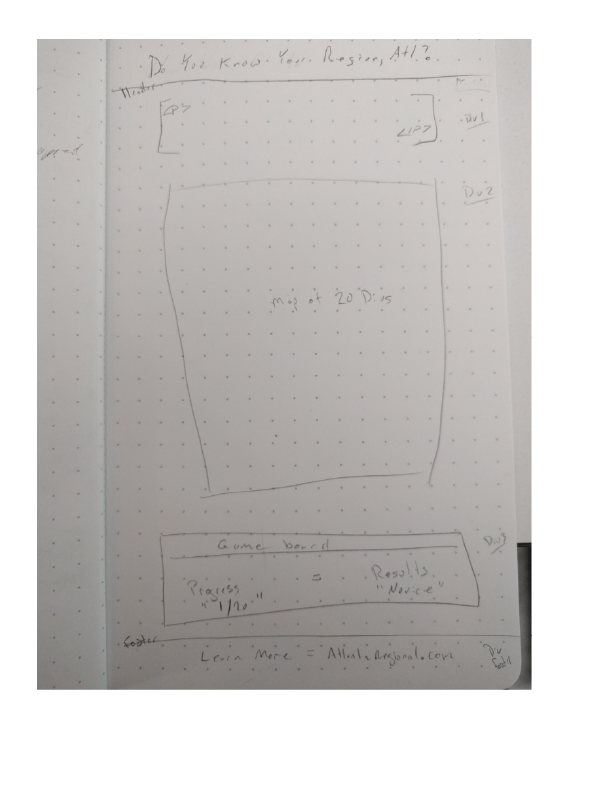 Do You Know Your Region, Atl?
Header
<P>
</P>
Div1
Div2
Map of 20 Divs
Div3
Game board
Progress = Results
"1/20" "Novice"
Footer
Learn More = AtlantaRegional.com
Div